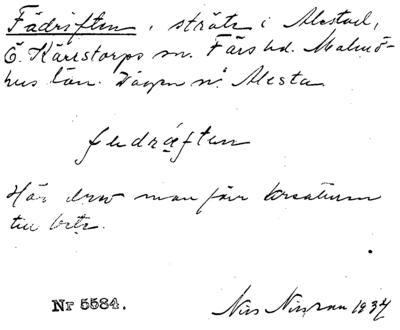 Fädriften, sträte i Alestad,
Ö. Kärrstorps sn. Färs hd. Malmö-
hus län. Vägen n. Alesta
feudräften
Här drev man förr kreaturen
till bete.
Nr 5584. Nils Nilsson 1934